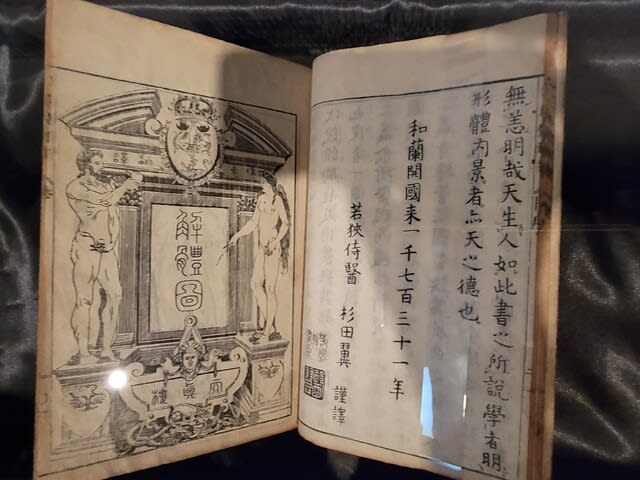 無恙明哉天生人如此書之所說學者明
形體內景者亦天之德也
和蘭開國來一千七百三十一年
若狹侍醫 杉田翼 謹譯
解體圖
天眞樓